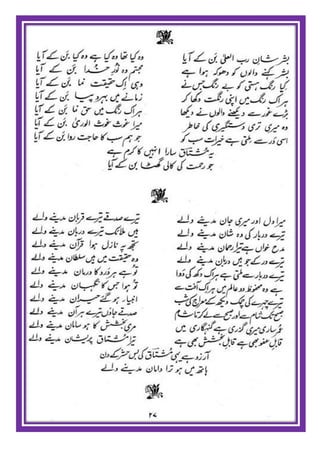 بشر شانِ رب العلیٰ بن کے آیا وہ کیا تھا وہ کیا ہے وہ کیا بن کے آیا
بشر کہنے والوں کو دھوکہ ہوا ہے مجسم وہ نورِ خدا بن کے آیا
ہستی کو بے رنگ جس نے وہی اک حقیقت نما بن کے آیا
ہر اک رنگ میں اپنی رنگت دکھا کر زمانے میں بہروپیا بن کے آیا
بڑے غور سے دیکھنے والوں نے دیکھا ہر اک رنگ میں حق نما بن کے آیا
وہ میری تری دستگیری کی خاطر مرا غوث غوث الوریٰ بن کے آیا
اسی در سے ملتی ہے خیرات سب کو جو ہم سب کا حاجت روا بن کے آیا
یہ مشتاق سارا انہیں کا کرم ہے
جو رحمت کی کالی گھٹا بن کے آیا
میرا دل اور میری جان مدینے والے تیرے صدقے تیرے قربان مدینے والے
تیرے دربار کی وہ شان مدینے والے ہیں ملائک تیرے دربان مدینے والے
مدح خواں ہے تیرا رحمان مدینے والے تجھ پہ نازل ہوا قرآن مدینے والے
تیرے در کے جو ہیں دربان مدینے والے وہ حقیقت میں ہیں سلطان مدینے والے
تیرے دربار سے ملتی ہے ہر اک دکھ کی دوا تو ہے ہر درد کا درمان مدینے والے
ہے وہ محفوظ دو عالم میں ہر اک آفت سے تو ہوا جس کا نگہبان مدینے والے
تیرے چہرے کی چمک دیکھ کے معراج کی شب انبیاء ہو گئے حیران مدینے والے
صبح تک شام سے اور صبح سے لے کر تا شام صدقے جاؤں تیرے ہر آن مدینے والے
عمر ساری میری گزری ہے گنہگاری میں میری بخشش کا ہو سامان مدینے والے
قابلِ عفو بھی ہے قابلِ بخشش بھی ہے تیرا مشتاق پریشان مدینے والے
آرزو ہے یہی مشتاق کی بس حشر کے دن
ہاتھ میں ہو ترا دامان مدینے والے
۲۷